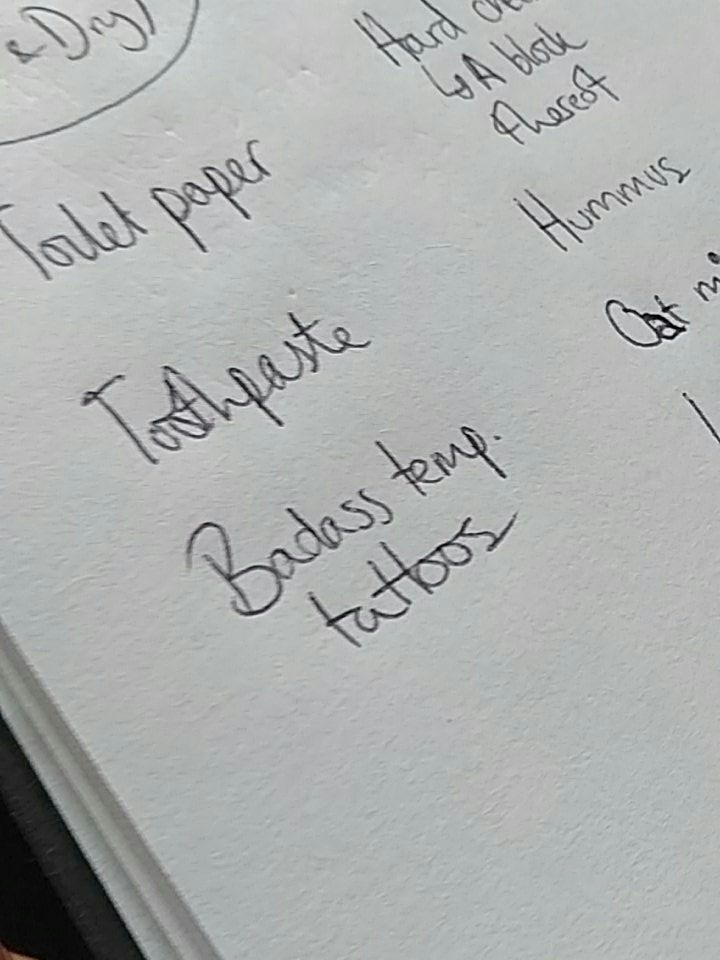 & Dry)
Toilet paper
Toothpaste
Badass temp.
tattoos
Hard
↳ A block
thereof
Hummus
Oat